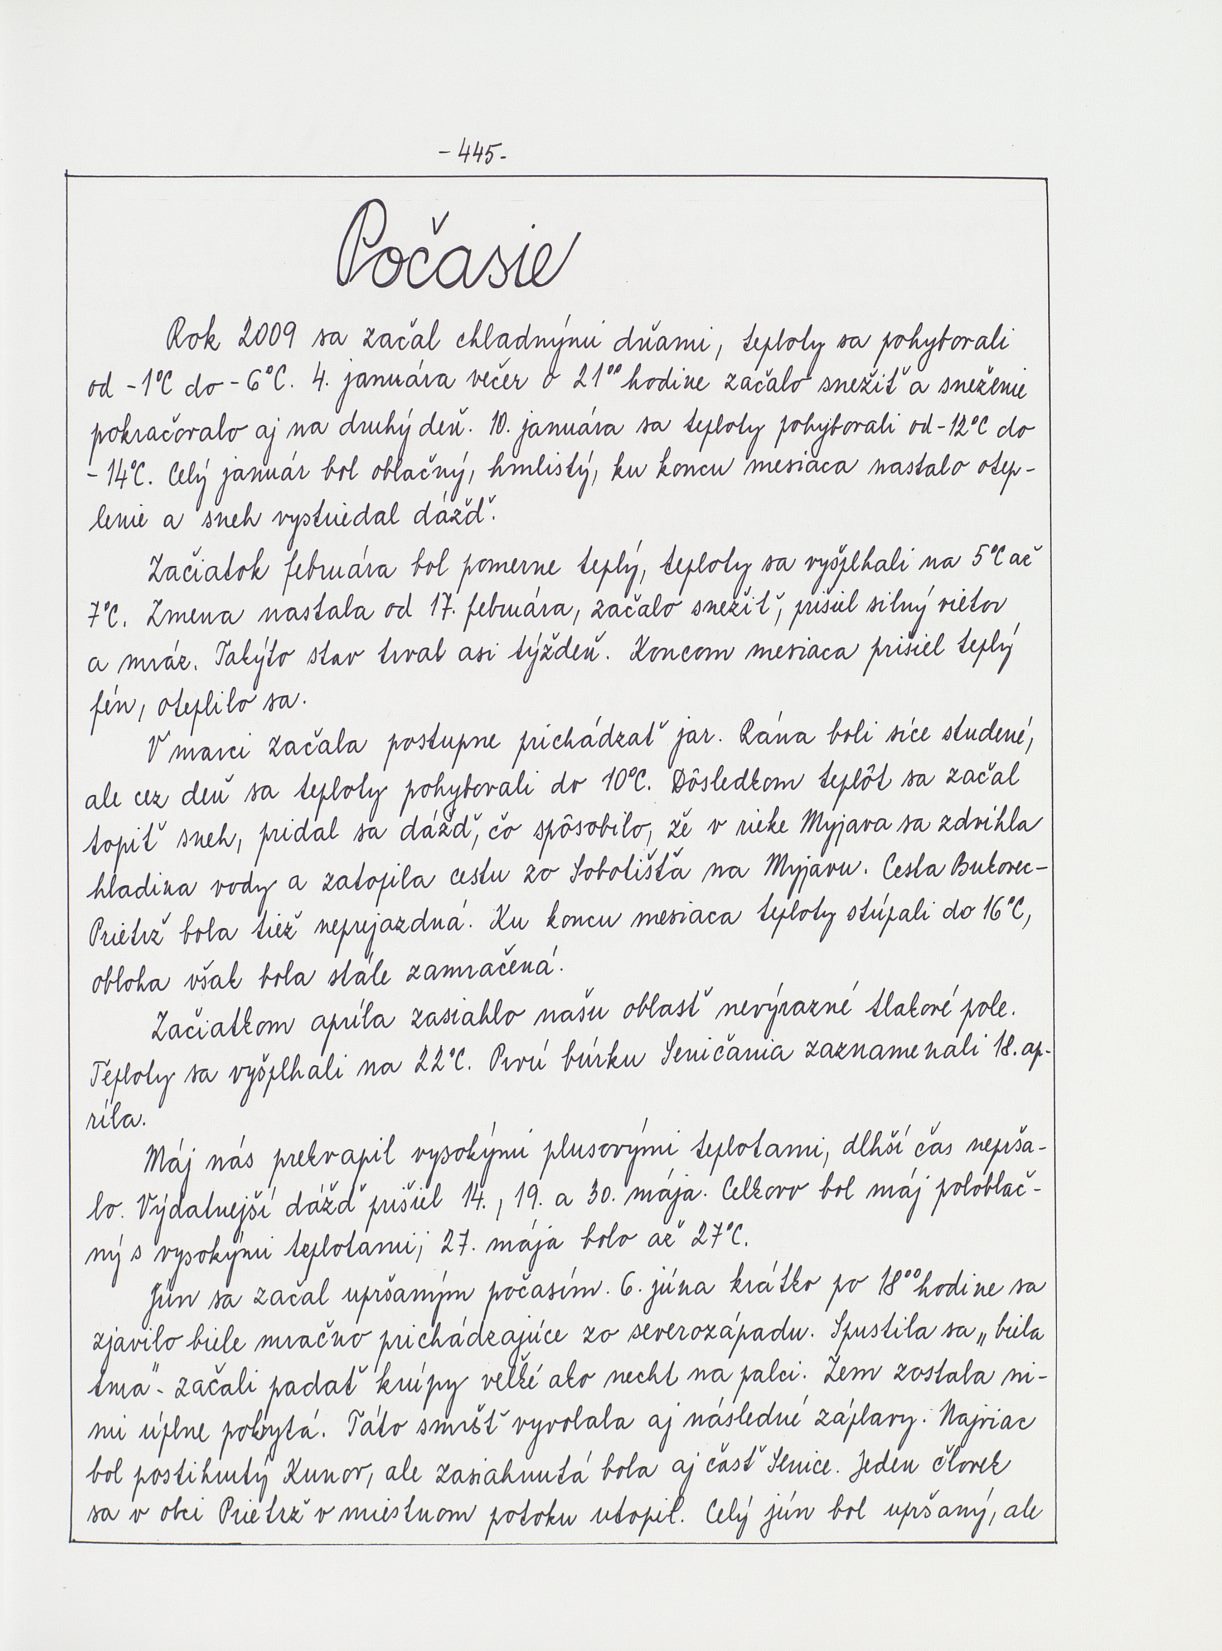 - 445 -
Počasie
Rok 2009 sa začal chladnými dňami, teploty sa pohybovali
od -1°C do -6°C. 4. januára večer o 21⁰⁰ hodine začalo snežiť a sneženie
pokračovalo aj na druhý deň. 10. januára sa teploty pohybovali od -12°C do
-14°C. Celý január bol oblačný, hmlistý, ku koncu mesiaca nastalo otep-
lenie a sneh vystriedal dážď.
Začiatok februára bol pomerne teplý, teploty sa vyšplhali na 5°C až
7°C. Zmena nastala od 17. februára, začalo snežiť, prišiel silný vietor
a mráz. Takýto stav trval asi týždeň. Koncom mesiaca prišiel teplý
fén, oteplilo sa.
V marci začala postupne prichádzať jar. Rána boli síce studené,
ale cez deň sa teploty pohybovali do 10°C. Dôsledkom teplôt sa začal
topiť sneh, pridal sa dážď, čo spôsobilo, že v rieke Myjava sa zdvihla
hladina vody a zatopila cestu zo Sobotišťa na Myjavu. Cesta Bukovec-
Prietrž bola tiež neprejazdná. Ku koncu mesiaca teploty stúpali do 16°C,
obloha však bola stále zamračená.
Začiatkom apríla zasiahlo našu oblasť nevýrazné tlakové pole.
Teploty sa vyšplhali na 22°C. Prvú búrku Seničania zaznamenali 18. ap-
ríla.
Máj nás prekvapil vysokými plusovými teplotami, dlhší čas neprša-
lo. Výdatnejší dážď prišiel 14., 19. a 30. mája. Celkovo bol máj poloblač-
ný s vysokými teplotami; 27. mája bolo až 27°C.
Jún sa začal upršaným počasím. 6. júna krátko po 18⁰⁰ hodine sa
zjavilo biele mračno prichádzajúce zo severozápadu. Spustila sa „biela
tma" - začali padať krúpy veľké ako necht na palci. Zem zostala ni-
mi úplne pokrytá. Táto smršť vyvolala aj následné záplavy. Najviac
bol postihnutý Kunov, ale zasiahnutá bola aj časť Senice. Jeden človek
sa v obci Prietrž v miestnom potoku utopil. Celý jún bol upršaný, ale